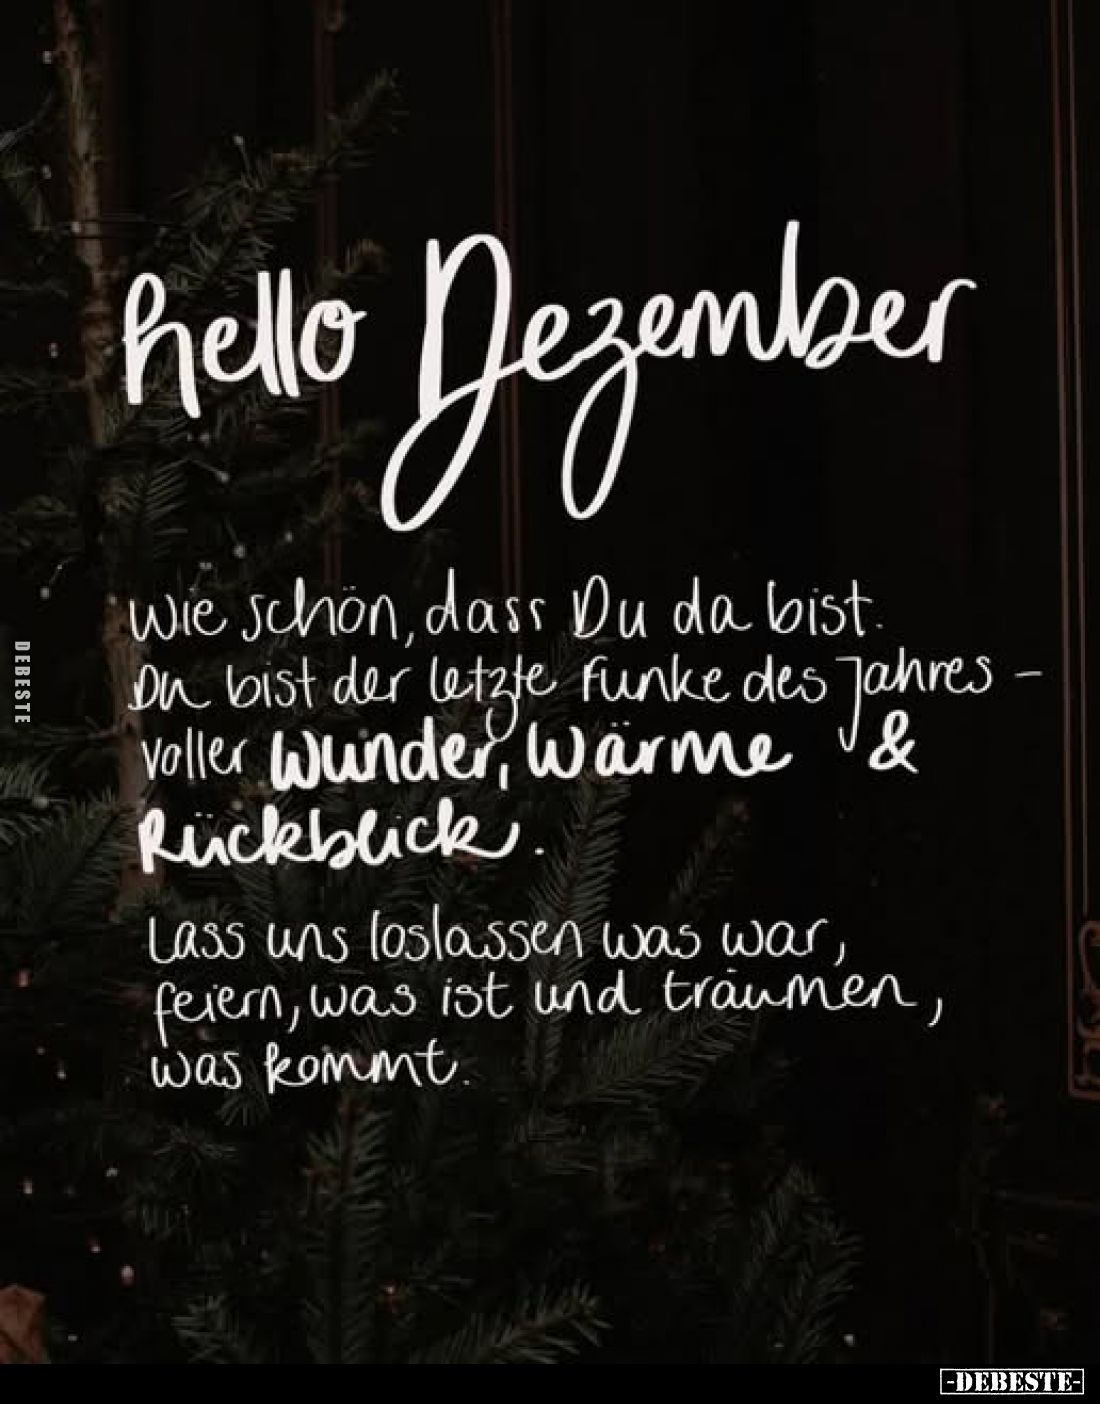 hello Dezember
Wie schön, dass Du da bist.
Du bist der letzte Funke des Jahres –
voller Wunder, Wärme &
Rückblick.
Lass uns loslassen was war,
feiern, was ist und träumen,
was kommt.
DEBESTE
-DEBESTE-